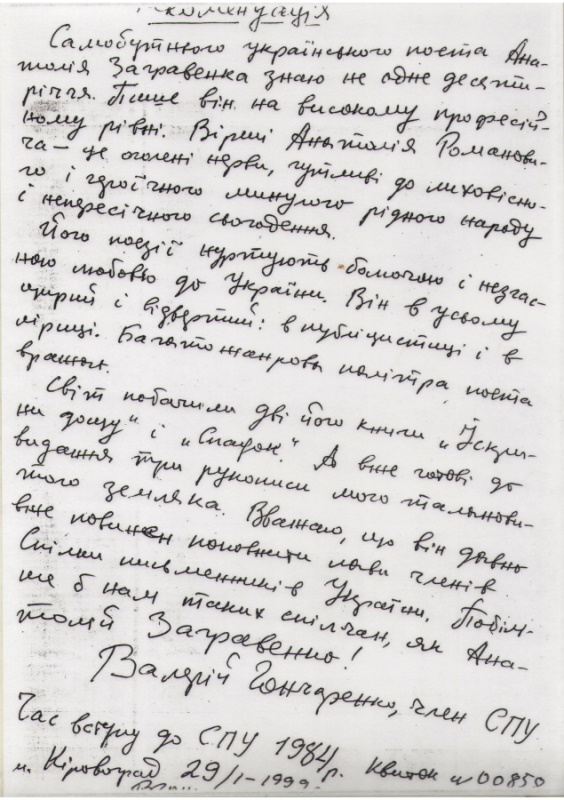 Рекомендація
Самобутнього українського поета Ана-
толія Загравенка знаю не одне десяти-
річчя. Пише він на високому професій-
ному рівні. Вірші Анатолія Романови-
ча – це оголені нерви, чутливі до лиховісно-
го і героїчного минулого рідного народу
і непересічного сьогодення.
Його поезії нуртують болючою і незгас-
ною любовью до України. Він в усьому
щирий і відвертий: в публіцистиці і в
ліриці. Багатожанрова палітра поета
вражає.
Світ побачили дві його книги „Іскри-
ни дощу" і „Спадок". А вже готові до
видання три рукописи мого талануви-
того земляка. Вважаю, що він давно
вже повинен поповнити лави членів
Спілки письменників України. Побіль-
ше б нам таких спілчан, як Ана-
толій Загравенко!
Валерій Гончаренко, член СПУ
Час вступу до СПУ 1984 р. Квиток № 00850
м. Кіровоград 29/I–1999